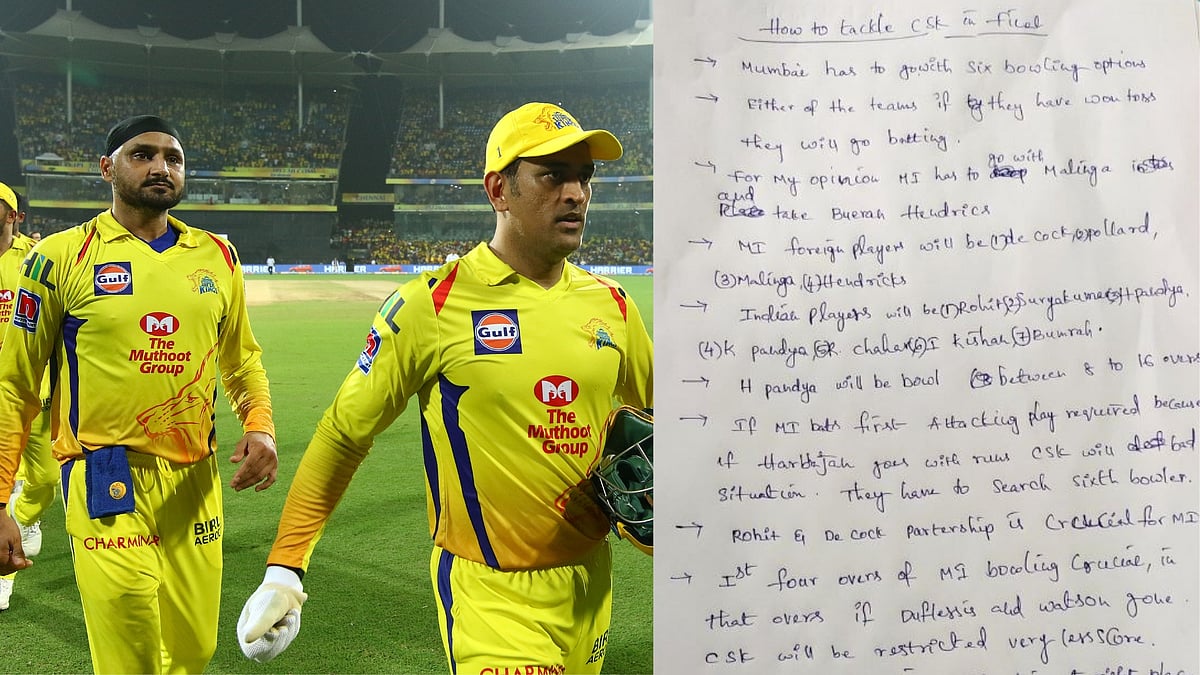 HIL
Gulf
The Muthoot
Group
CHARMINAR
BIRLA
AEROC
HIL
Gulf
The
Muthoot
Group
BIRL
AERO
CHARMINAR
HARRIER
HARRIER
CHENNAI
How to tackle CSK in final
→ Mumbai has to gowith six bowling options
→ Either of the teams if they have won toss
they will go batting.
→ For My opinion MI has to go with Malinga
and take Buerah Hendrics
→ MI foreign players will be (1) de cock, (2) pollard,
(3) Malinga, (4) Hendricks
→ Indian players will be (1) Rohit (2) Suryakumar (3) H pandya,
(4) K pandya (5) R. chahar (6) I Kishan (7) Bumrah.
→ H pandya will be bowl between 8 to 16 overs
→ If MI bats first Attacking play required because
if Harbajan goes with runs CSK will bad
situation. They have to search sixth bowler.
→ Rohit & De cock Partership is Crucial for MI
→ Ist four overs of MI bowling Crucial, in
that overs if Duflessis and watson gone.
CSK will be restricted very less Score.